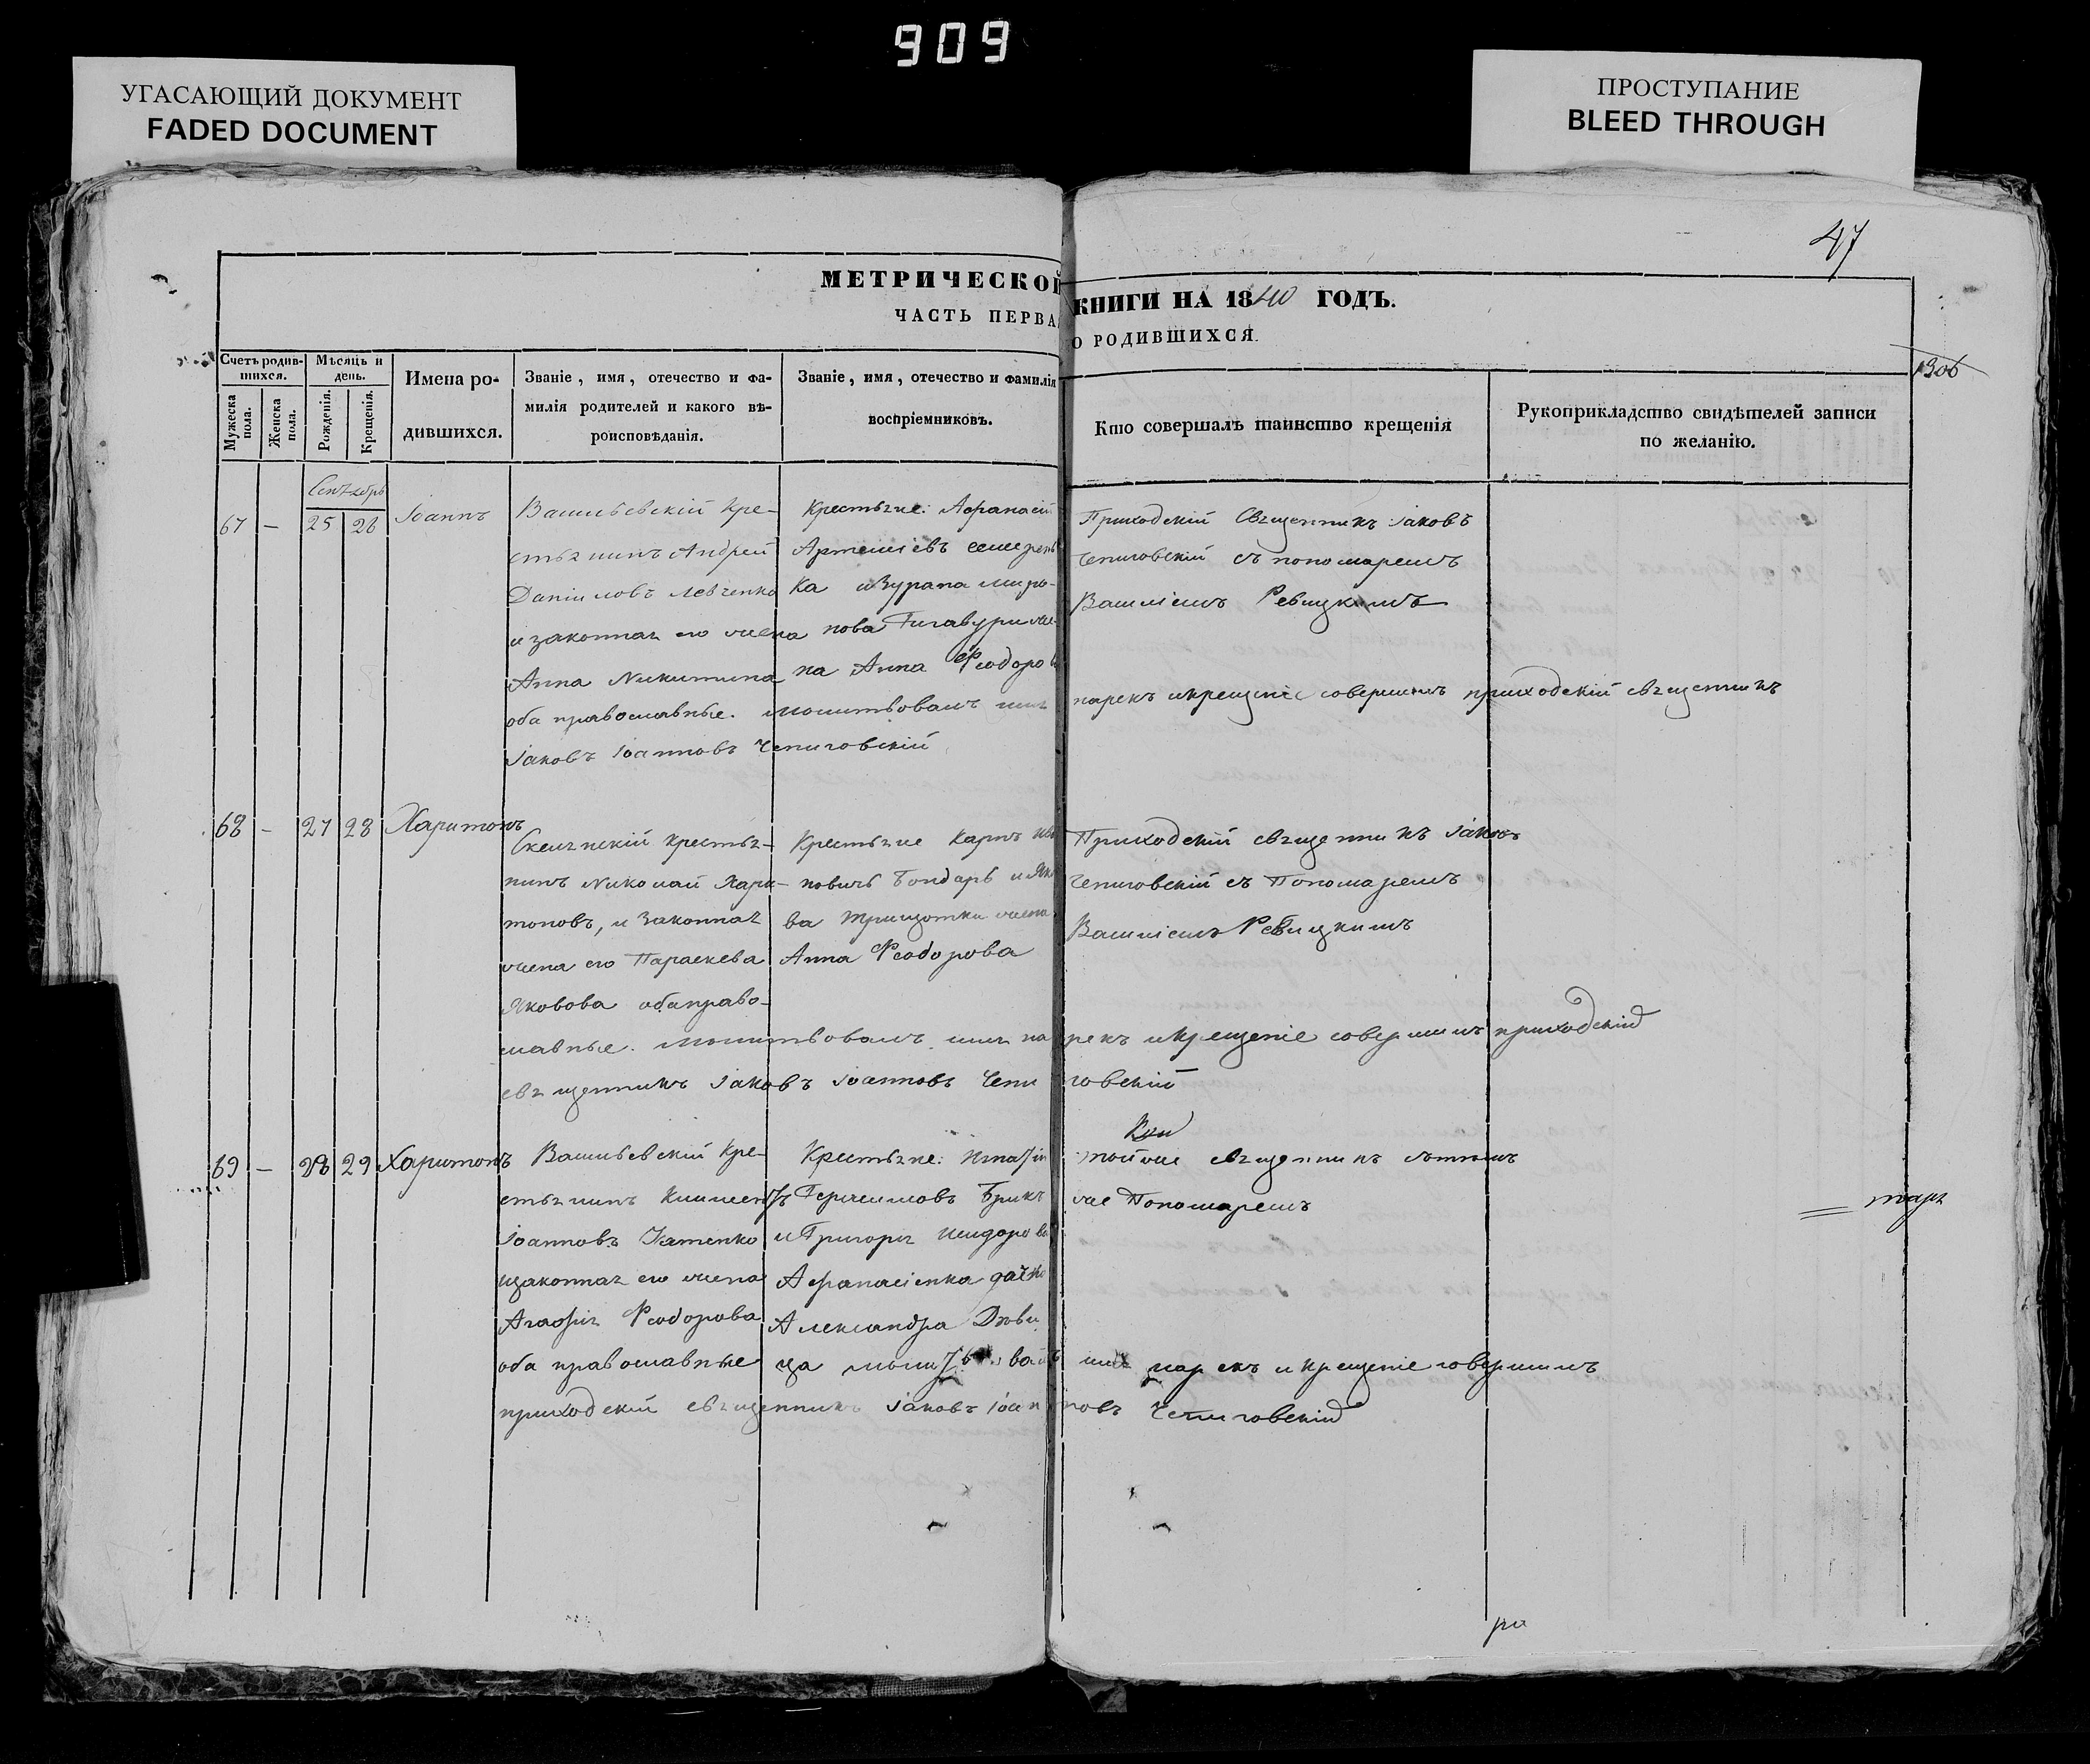 909
УГАСАЮЩИЙ ДОКУМЕНТ
FADED DOCUMENT
ПРОСТУПАНИЕ
BLEED THROUGH
47
МЕТРИЧЕСКОЙ КНИГИ НА 1840 ГОДЪ.
ЧАСТЬ ПЕРВА О РОДИВШИХСЯ.
1306
Счетъ родив-
шихся.
Мужеска
пола.
Женска
пола.
Мѣсяць и
день.
Рожденія.
Крещенія.
Имена ро-
дившихся.
Званіе, имя, отечество и фа-
милія родителей и какого вѣ-
роисповѣданія.
Званіе, имя, отечество и фамилія
воспріемниковъ.
Кто совершалъ таинство крещенія
Рукоприкладство свидѣтелей записи
по желанію.
Сентябрь
67 — 25 26 Іоаннъ
Васильевскій кре-
стьянинъ Андрей
Даніиловъ Левченко
и законная его жена
Анна Никитина
оба православные. молитвовалъ имя
Іаковъ Іоанновъ Чепиговскій
Крестьяне: Афанасій
Артеміевъ
ка
нова
на Анна Феодоро
Приходскій Священникъ Іаковъ
Чепиговскій съ пономаремъ
Василіемъ Ревицкимъ
нарекъ и крещеніе совершилъ приходскій священникъ
68 — 27 28 Харитонъ
Скелянскій крестья-
нинъ Николай Хари-
тоновъ, и законная
жена его Параскева
Яковова оба право-
славные. Молитвовалъ имя на рекъ и крещеніе совершилъ приходскій
священникъ Іаковъ Іоанновъ Чепи говскій
Крестьяне Карпъ
новичъ Бондарь и Яко
ва жена
Анна Феодорова
Приходскій священникъ Іаковъ
Чепиговскій съ Пономаремъ
Василіемъ Ревицкимъ
69 — 28 29 Харитонъ
Васильевскій кре-
стьянинъ Климентъ
Іоанновъ
и законная его жена
Агафія Феодорова
оба православные
приходскій священникъ Іаковъ Іоан новъ Чепиговскій
Крестьяне: Игнатій
Герасимовъ
и Григорія Исидорова
Афанасіенка дочь
Александра
ца молитвовалъ имя нарекъ и крещеніе совершилъ
тойже священникъ сътѣмъ
же Пономаремъ